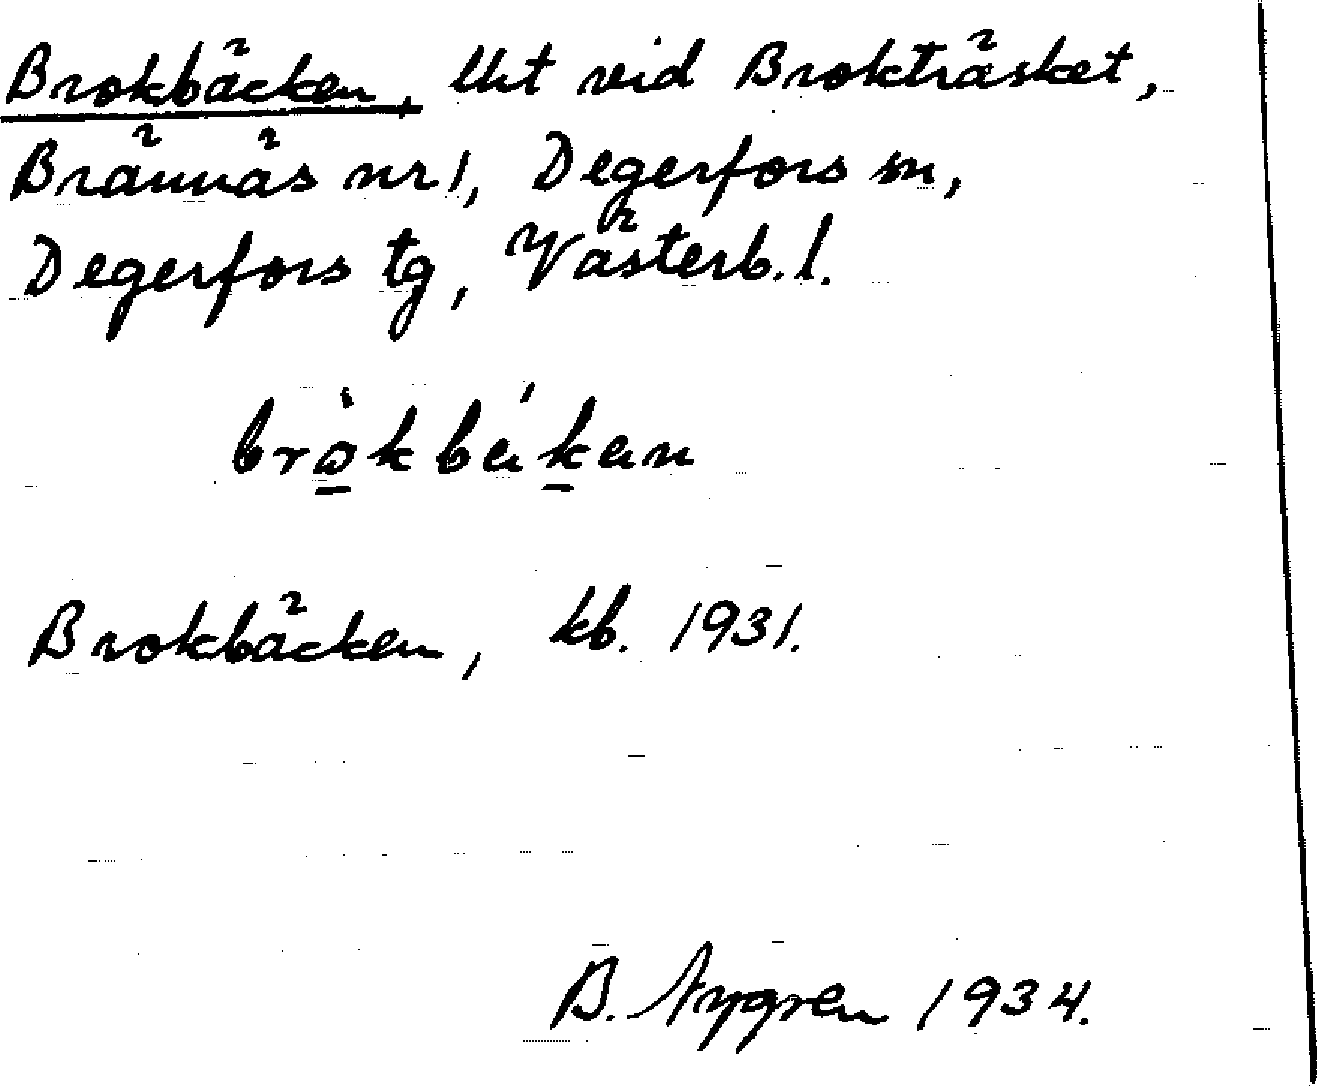 Brokbäcken, Utt vid Brokträsket,
Brännäs nr 1, Degerfors sn,
Degerfors tg, Västerb. l.
Brokbäcken, kb. 1931.
B. Nygren 1934.